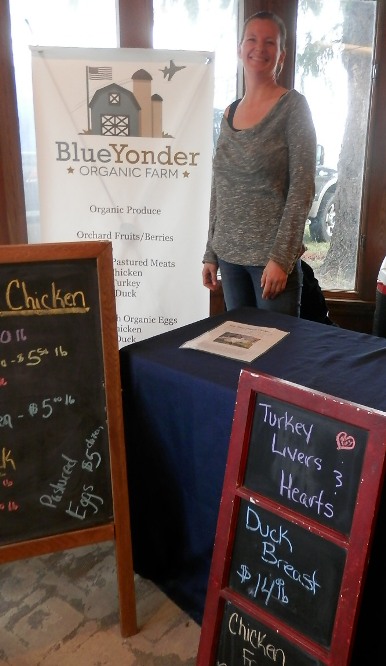 BlueYonder
ORGANIC FARM
Organic Produce
Orchard Fruits/Berries
Pastured Meats
Chicken
Turkey
Duck
Organic Eggs
Chicken
Duck
Chicken
lb
$5.00 lb
$5.00 lb
Pastured
Eggs $5
Turkey
Livers &
Hearts
Duck
Breast
$14 lb
Chicken